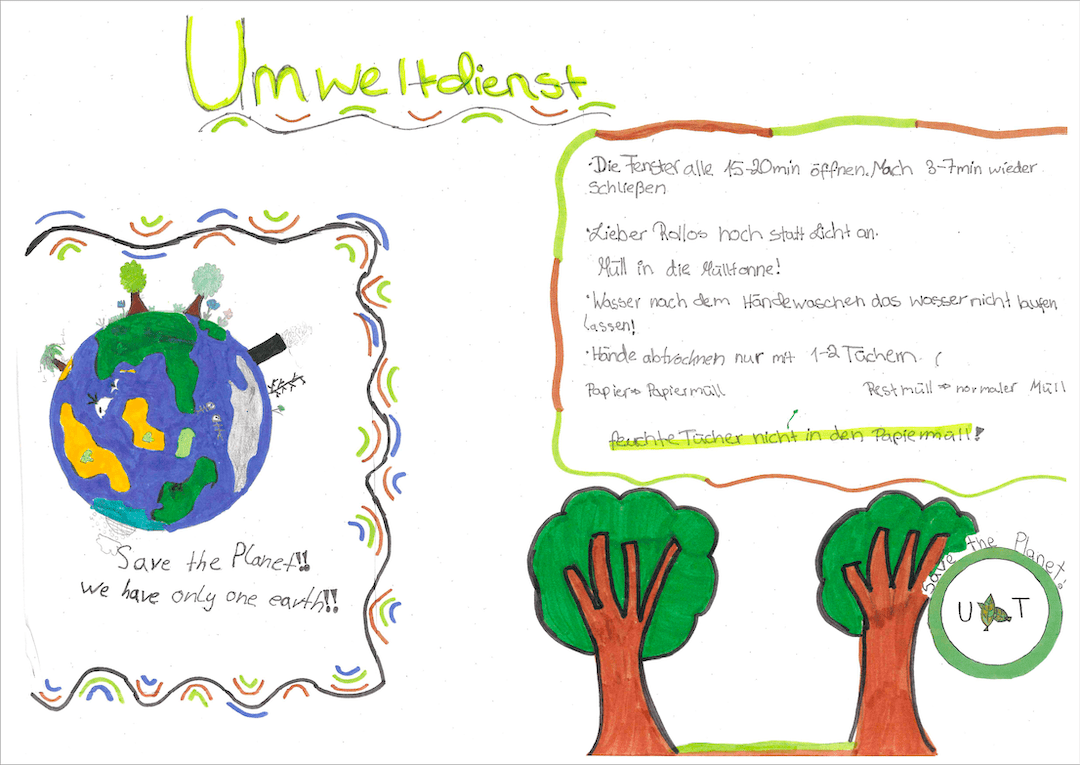 Umweltdienst
·Die Fenster alle 15-20min öffnen. Nach 3-7min wieder
schließen
·Lieber Rollos hoch statt Licht an.
Müll in die Mülltonne!
·Wasser nach dem Händewaschen das wasser nicht laufen
lassen!
·Hände abtrocknen nur mit 1-2 Tüchern. (
Papier⇒Papiermüll Restmüll⇒normaler Müll
feuchte Tücher nicht in den Papiermüll!
Save the Planet!!
we have only one earth!!
Save the Planet!
U T